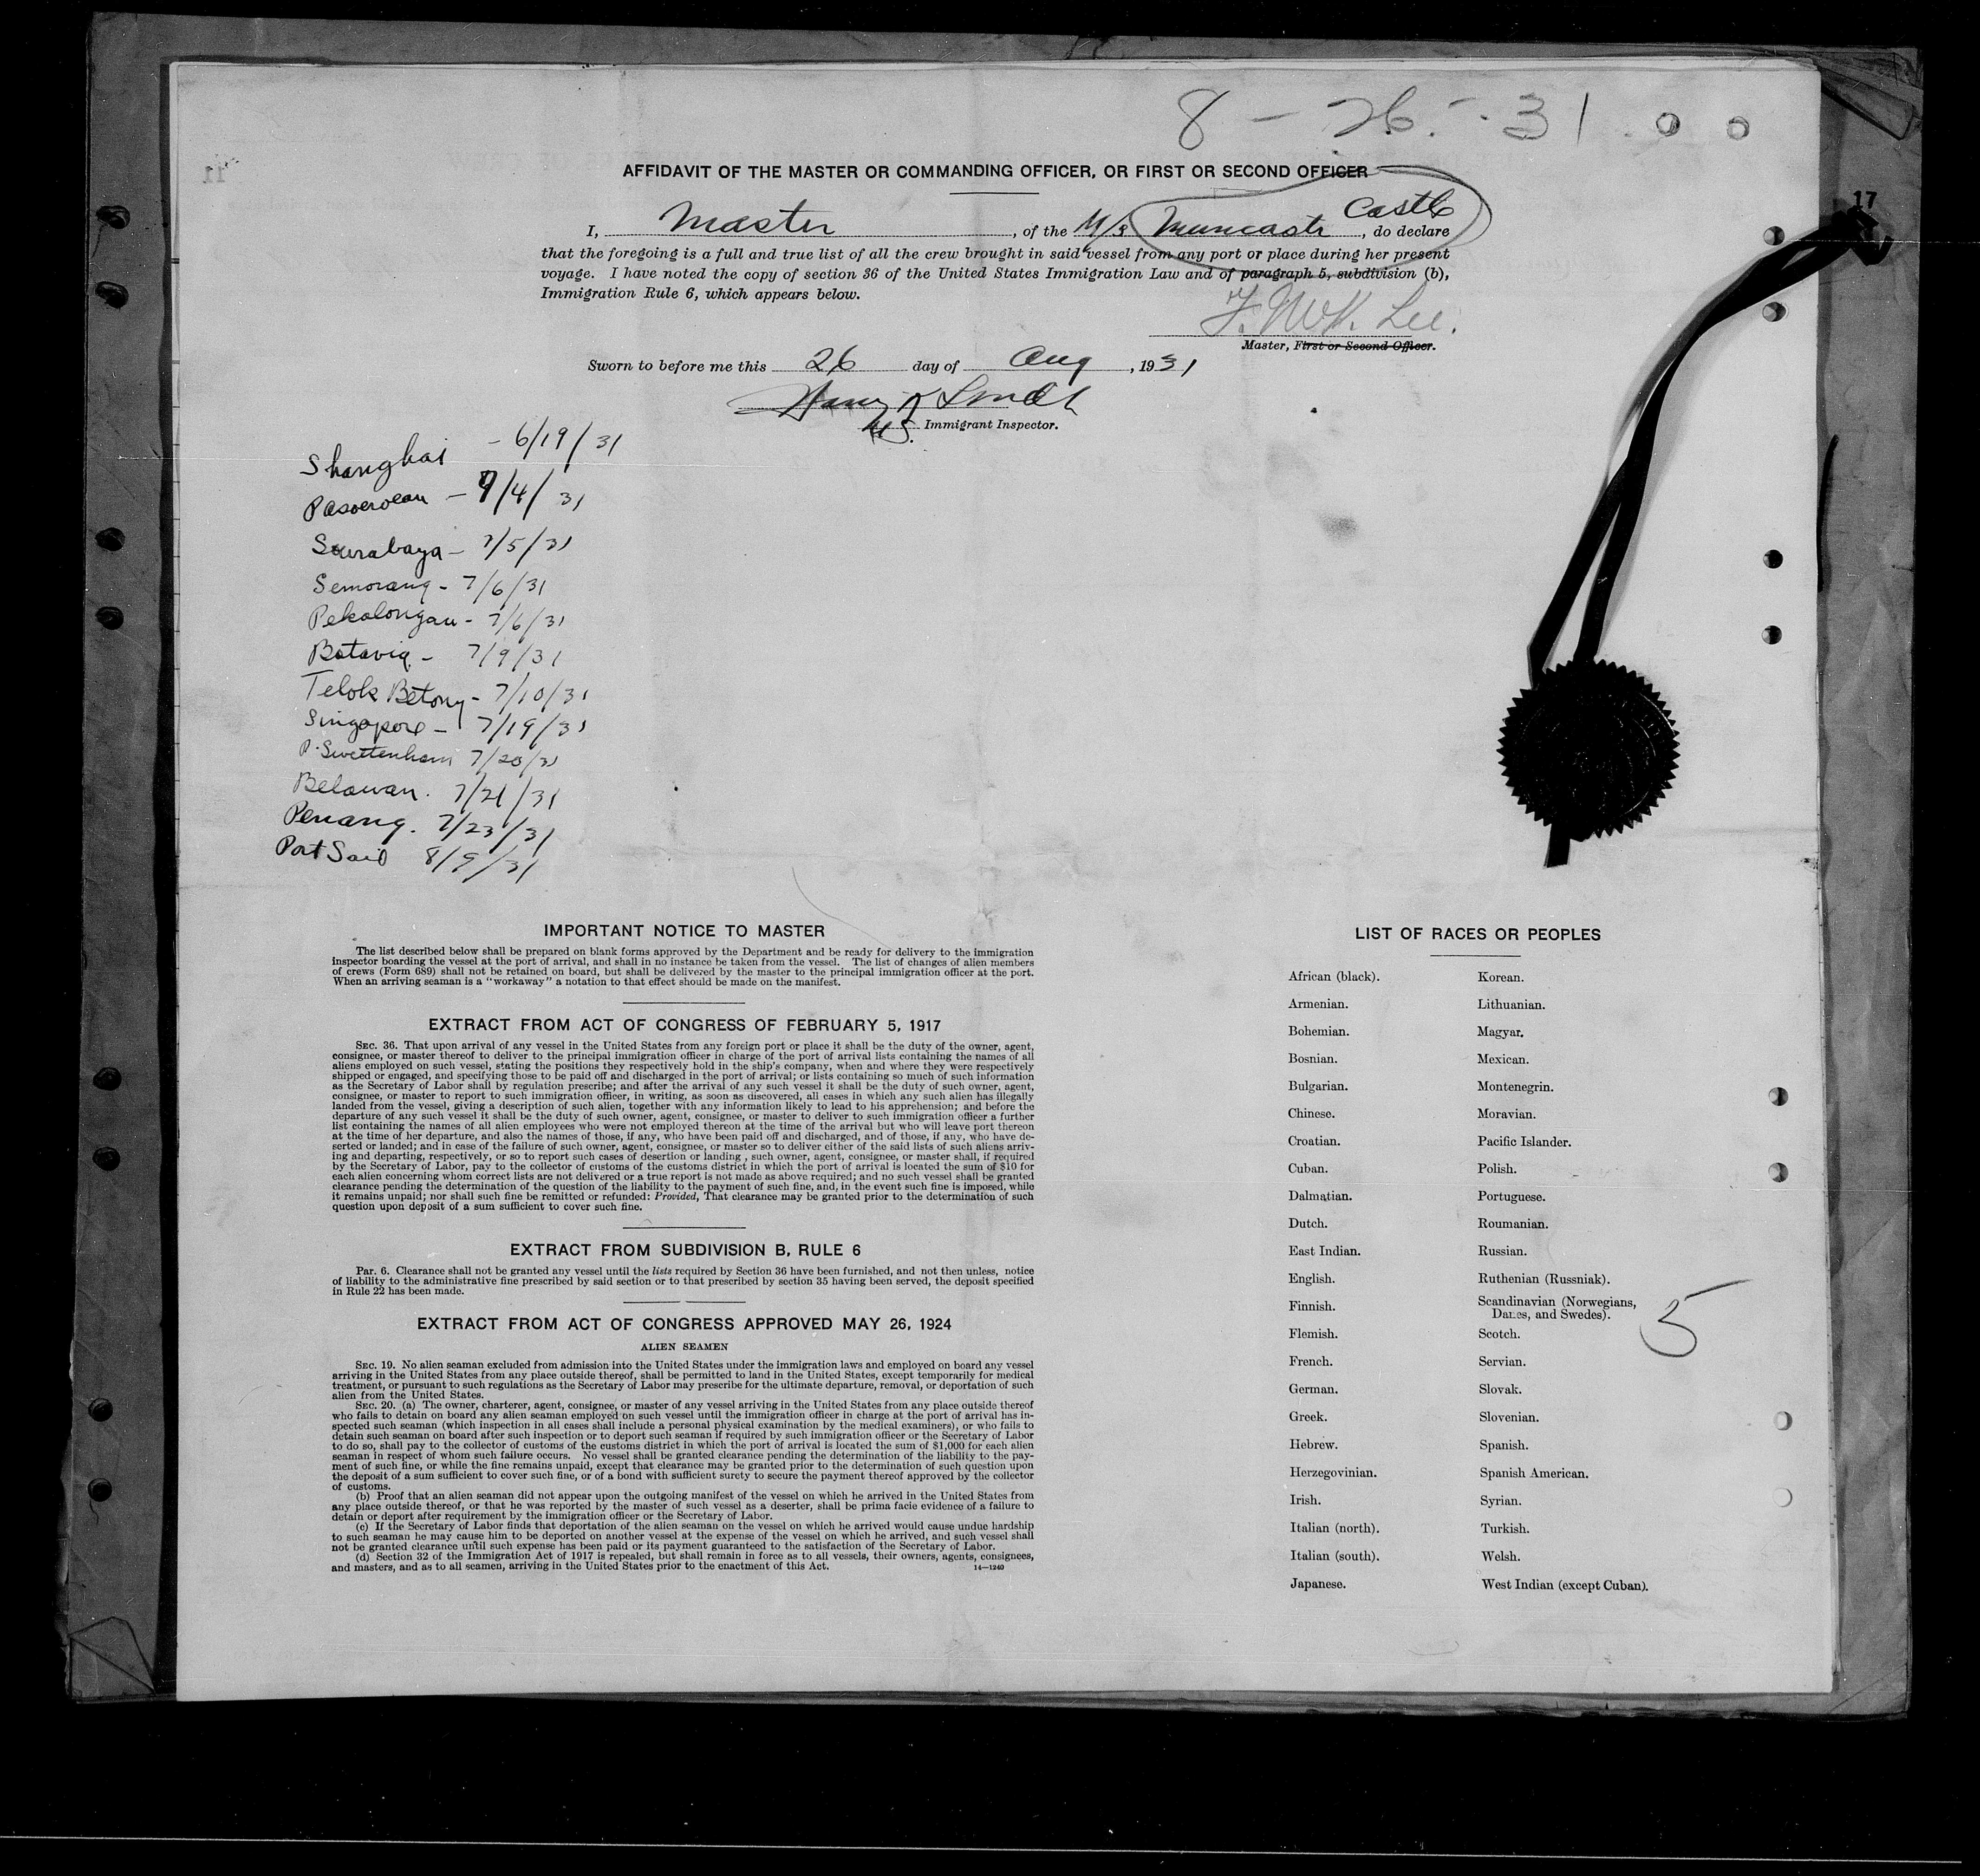 8 - 26 - 31
11
17
AFFIDAVIT OF THE MASTER OR COMMANDING OFFICER, OR FIRST OR SECOND OFFICER
Castle
I, Master, of the M/S Muncaster, do declare
that the foregoing is a full and true list of all the crew brought in said vessel from any port or place during her present
voyage. I have noted the copy of section 36 of the United States Immigration Law and of paragraph 5, subdivision (b),
Immigration Rule 6, which appears below.
Lee.
Master, First or Second Officer.
Sworn to before me this 26 day of Aug, 1931
U.S. Immigrant Inspector.
Shanghai - 6/19/31
Pasoeroean - 7/4/31
Surabaya - 7/5/31
Semorang - 7/6/31
Pekalongan - 7/6/31
Batavia - 7/9/31
Telok Betong - 7/10/31
Singapore - 7/19/31
P. Swettenham 7/20/31
Belawan. 7/21/31
Penang. 7/23/31
Port Said 8/9/31
IMPORTANT NOTICE TO MASTER
The list described below shall be prepared on blank forms approved by the Department and be ready for delivery to the immigration
inspector boarding the vessel at the port of arrival, and shall in no instance be taken from the vessel. The list of changes of alien members
of crews (Form 689) shall not be retained on board, but shall be delivered by the master to the principal immigration officer at the port.
When an arriving seaman is a "workaway" a notation to that effect should be made on the manifest.
EXTRACT FROM ACT OF CONGRESS OF FEBRUARY 5, 1917
SEC. 36. That upon arrival of any vessel in the United States from any foreign port or place it shall be the duty of the owner, agent,
consignee, or master thereof to deliver to the principal immigration officer in charge of the port of arrival lists containing the names of all
aliens employed on such vessel, stating the positions they respectively hold in the ship's company, when and where they were respectively
shipped or engaged, and specifying those to be paid off and discharged in the port of arrival; or lists containing so much of such information
as the Secretary of Labor shall by regulation prescribe; and after the arrival of any such vessel it shall be the duty of such owner, agent,
consignee, or master to report to such immigration officer, in writing, as soon as discovered, all cases in which any such alien has illegally
landed from the vessel, giving a description of such alien, together with any information likely to lead to his apprehension; and before the
departure of any such vessel it shall be the duty of such owner, agent, consignee, or master to deliver to such immigration officer a further
list containing the names of all alien employees who were not employed thereon at the time of the arrival but who will leave port thereon
at the time of her departure, and also the names of those, if any, who have been paid off and discharged, and of those, if any, who have de-
serted or landed; and in case of the failure of such owner, agent, consignee, or master so to deliver either of the said lists of such aliens arriv-
ing and departing, respectively, or so to report such cases of desertion or landing , such owner, agent, consignee, or master shall, if required
by the Secretary of Labor, pay to the collector of customs of the customs district in which the port of arrival is located the sum of $10 for
each alien concerning whom correct lists are not delivered or a true report is not made as above required; and no such vessel shall be granted
clearance pending the determination of the question of the liability to the payment of such fine, and, in the event such fine is imposed, while
it remains unpaid; nor shall such fine be remitted or refunded: Provided, That clearance may be granted prior to the determination of such
question upon deposit of a sum sufficient to cover such fine.
EXTRACT FROM SUBDIVISION B, RULE 6
Par. 6. Clearance shall not be granted any vessel until the lists required by Section 36 have been furnished, and not then unless, notice
of liability to the administrative fine prescribed by said section or to that prescribed by section 35 having been served, the deposit specified
in Rule 22 has been made.
EXTRACT FROM ACT OF CONGRESS APPROVED MAY 26, 1924
ALIEN SEAMEN
SEC. 19. No alien seaman excluded from admission into the United States under the immigration laws and employed on board any vessel
arriving in the United States from any place outside thereof, shall be permitted to land in the United States, except temporarily for medical
treatment, or pursuant to such regulations as the Secretary of Labor may prescribe for the ultimate departure, removal, or deportation of such
alien from the United States.
SEC. 20. (a) The owner, charterer, agent, consignee, or master of any vessel arriving in the United States from any place outside thereof
who fails to detain on board any alien seaman employed on such vessel until the immigration officer in charge at the port of arrival has in-
spected such seaman (which inspection in all cases shall include a personal physical examination by the medical examiners), or who fails to
detain such seaman on board after such inspection or to deport such seaman if required by such immigration officer or the Secretary of Labor
to do so, shall pay to the collector of customs of the customs district in which the port of arrival is located the sum of $1,000 for each alien
seaman in respect of whom such failure occurs. No vessel shall be granted clearance pending the determination of the liability to the pay-
ment of such fine, or while the fine remains unpaid, except that clearance may be granted prior to the determination of such question upon
the deposit of a sum sufficient to cover such fine, or of a bond with sufficient surety to secure the payment thereof approved by the collector
of customs.
(b) Proof that an alien seaman did not appear upon the outgoing manifest of the vessel on which he arrived in the United States from
any place outside thereof, or that he was reported by the master of such vessel as a deserter, shall be prima facie evidence of a failure to
detain or deport after requirement by the immigration officer or the Secretary of Labor.
(c) If the Secretary of Labor finds that deportation of the alien seaman on the vessel on which he arrived would cause undue hardship
to such seaman he may cause him to be deported on another vessel at the expense of the vessel on which he arrived, and such vessel shall
not be granted clearance until such expense has been paid or its payment guaranteed to the satisfaction of the Secretary of Labor.
(d) Section 32 of the Immigration Act of 1917 is repealed, but shall remain in force as to all vessels, their owners, agents, consignees,
and masters, and as to all seamen, arriving in the United States prior to the enactment of this Act.
14—1240
LIST OF RACES OR PEOPLES
African (black).
Armenian.
Bohemian.
Bosnian.
Bulgarian.
Chinese.
Croatian.
Cuban.
Dalmatian.
Dutch.
East Indian.
English.
Finnish.
Flemish.
French.
German.
Greek.
Hebrew.
Herzegovinian.
Irish.
Italian (north).
Italian (south).
Japanese.
Korean.
Lithuanian.
Magyar.
Mexican.
Montenegrin.
Moravian.
Pacific Islander.
Polish.
Portuguese.
Roumanian.
Russian.
Ruthenian (Russniak).
Scandinavian (Norwegians,
Danes, and Swedes).
Scotch.
Servian.
Slovak.
Slovenian.
Spanish.
Spanish American.
Syrian.
Turkish.
Welsh.
West Indian (except Cuban).
5